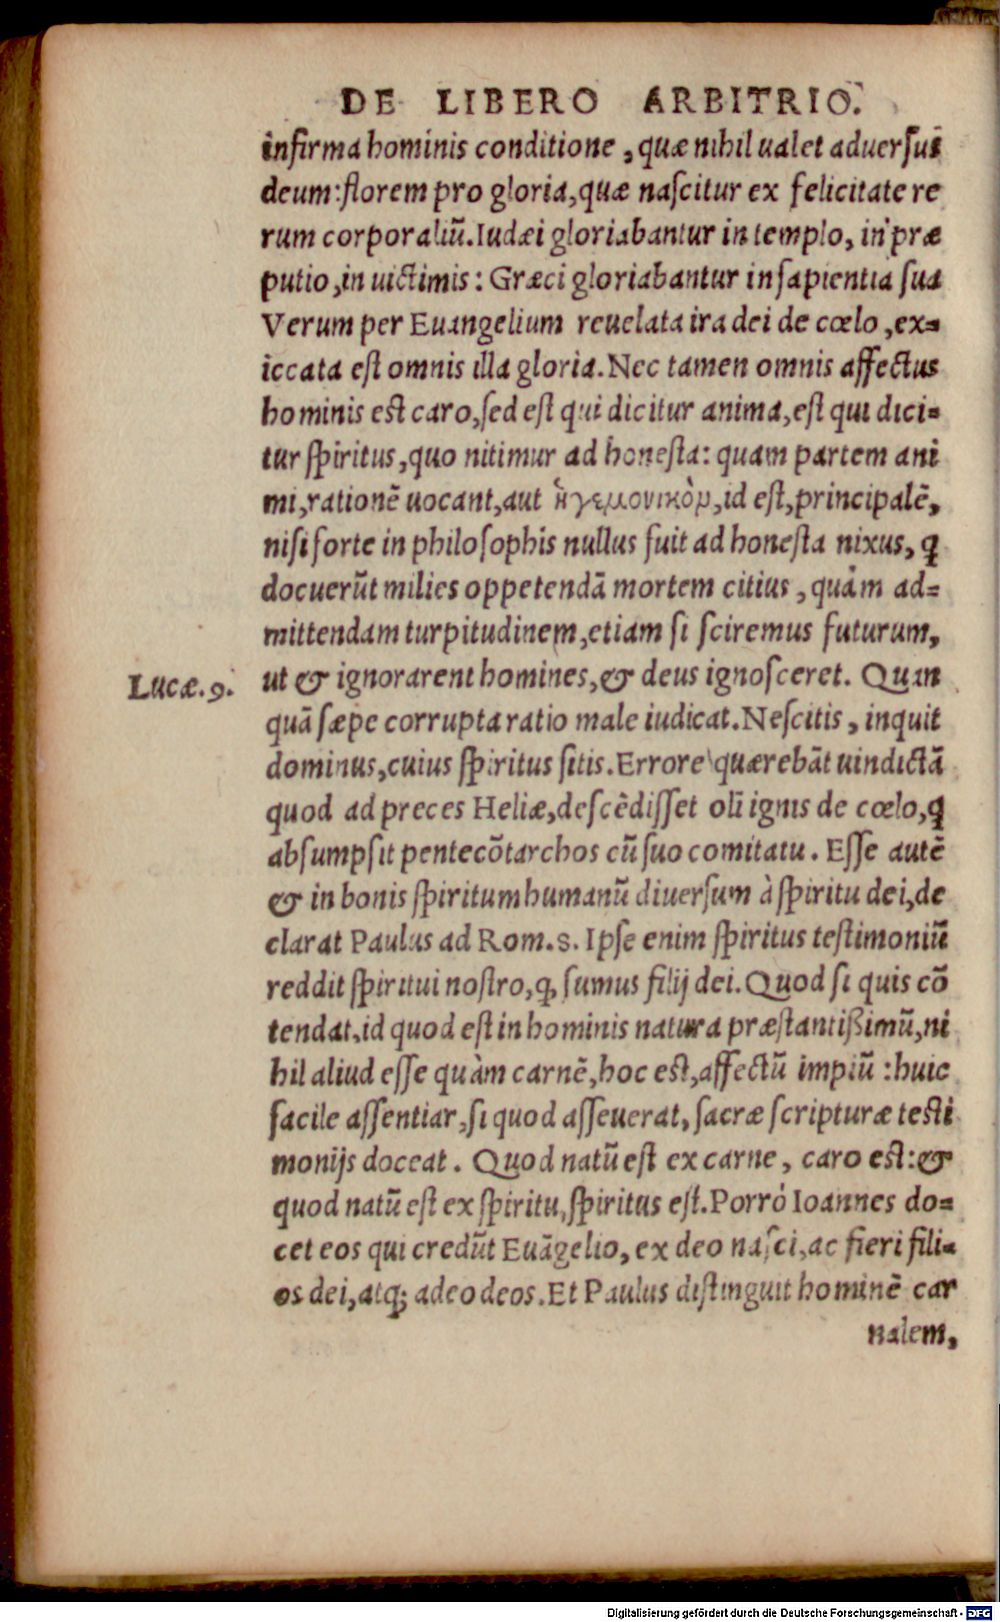 DE LIBERO ARBITRIO.
infirma hominis conditione, quæ nihil ualet aduersus
deum: florem pro gloria, quæ nascitur ex felicitate re
rum corporaliũ. Iudæi gloriabantur in templo, in præ
putio, in uictimis: Græci gloriabantur in sapientia sua
Verum per Euangelium reuelata ira dei de cœlo, ex=
iccata est omnis illa gloria. Nec tamen omnis affectus
hominis est caro, sed est qui dicitur anima, est qui dici=
tur spiritus, quo nitimur ad honesta: quam partem ani
mi, rationẽ uocant, aut ἡγεμονικὸν, id est, principalẽ,
nisi forte in philosophis nullus fuit ad honesta nixus, q
docuerũt milies oppetendã mortem citius, quàm ad=
mittendam turpitudinem, etiam si sciremus futurum,
Lucæ. 9.
ut & ignorarent homines, & deus ignosceret. Quan
quã sæpe corrupta ratio male iudicat. Nescitis, inquit
dominus, cuius spiritus sitis. Errore quærebãt uindictã
quod ad preces Heliæ, descẽdisset olĩ ignis de cœlo, q
absumpsit pentecõtarchos cũ suo comitatu. Esse autẽ
& in bonis spiritum humanũ diuersum à spiritu dei, de
clarat Paulus ad Rom. 8. Ipse enim spiritus testimoniũ
reddit spiritui nostro, q, sumus filij dei. Quod si quis cõ
tendat, id quod est in hominis natura præstantißimũ, ni
hil aliud esse quàm carnẽ, hoc est, affectũ impiũ: huic
facile assentiar, si quod asseuerat, sacræ scripturæ testi
monijs doceat. Quod natũ est ex carne, caro est: &
quod natũ est ex spiritu, spiritus est. Porrò Ioannes do=
cet eos qui credũt Euãgelio, ex deo nasci, ac fieri fili=
os dei, atq; adeo deos. Et Paulus distinguit hominẽ car
nalem,
Digitalisierung gefördert durch die Deutsche Forschungsgemeinschaft - DFG